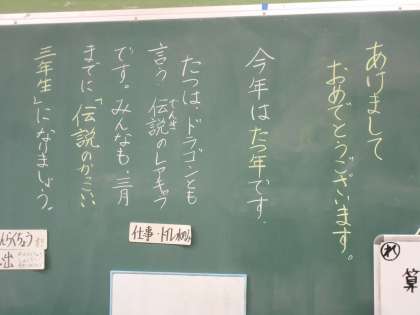 あけまして
おめでとうございます。
今年はたつ年です.
たつは、ドラゴンとも
言う 伝説のレアキャラ
です。みんなも、三月
までに「伝説のかっこいい
三年生」になりましょう。
仕事・トイレ・水のみ
んらくちょう
出
れ
算